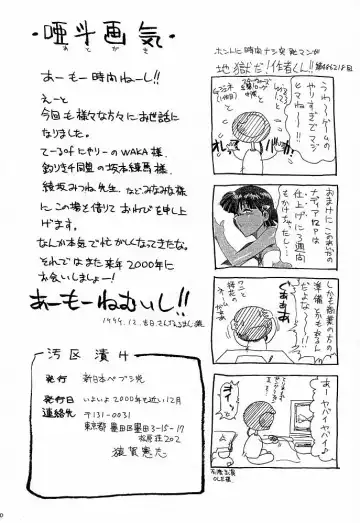 ・唖斗画気・
あとがき
あーもー時間ねーし!!
えーと
今回も様々な方々にお世話に
なりました。
てーるofにゃりーのWAKA様、
釣りキチ同盟の坂本練馬様、
綾坂みつね先生、などみなみな様
にこの場を借りておわびを申し上
げます。
なんか本気で忙がしくなってきたな。
それではまた来年2000年に
お会いしましょー!
あーもーねむいし!!
汚区潰け
発行 新日本ペプシ党
発行日 いよいよ2000年も近い12月
連絡先 〒131-0031
東京都墨田区墨田3-15-17
松原荘202
猿賀憲志
ホントに時間ナシ突発マンガ
地獄だ!作者くん!!
うわ〜ゲームの
やりすぎでマジ
ヒマね〜!!
おまけにこのあいだの
ナディア本Pは
仕上げに3週間
もかけちゃったし…
しかも商業の方の
準備とかもあるん
だよなーっ
ぐああああ
あーヤバイヤバイ!!